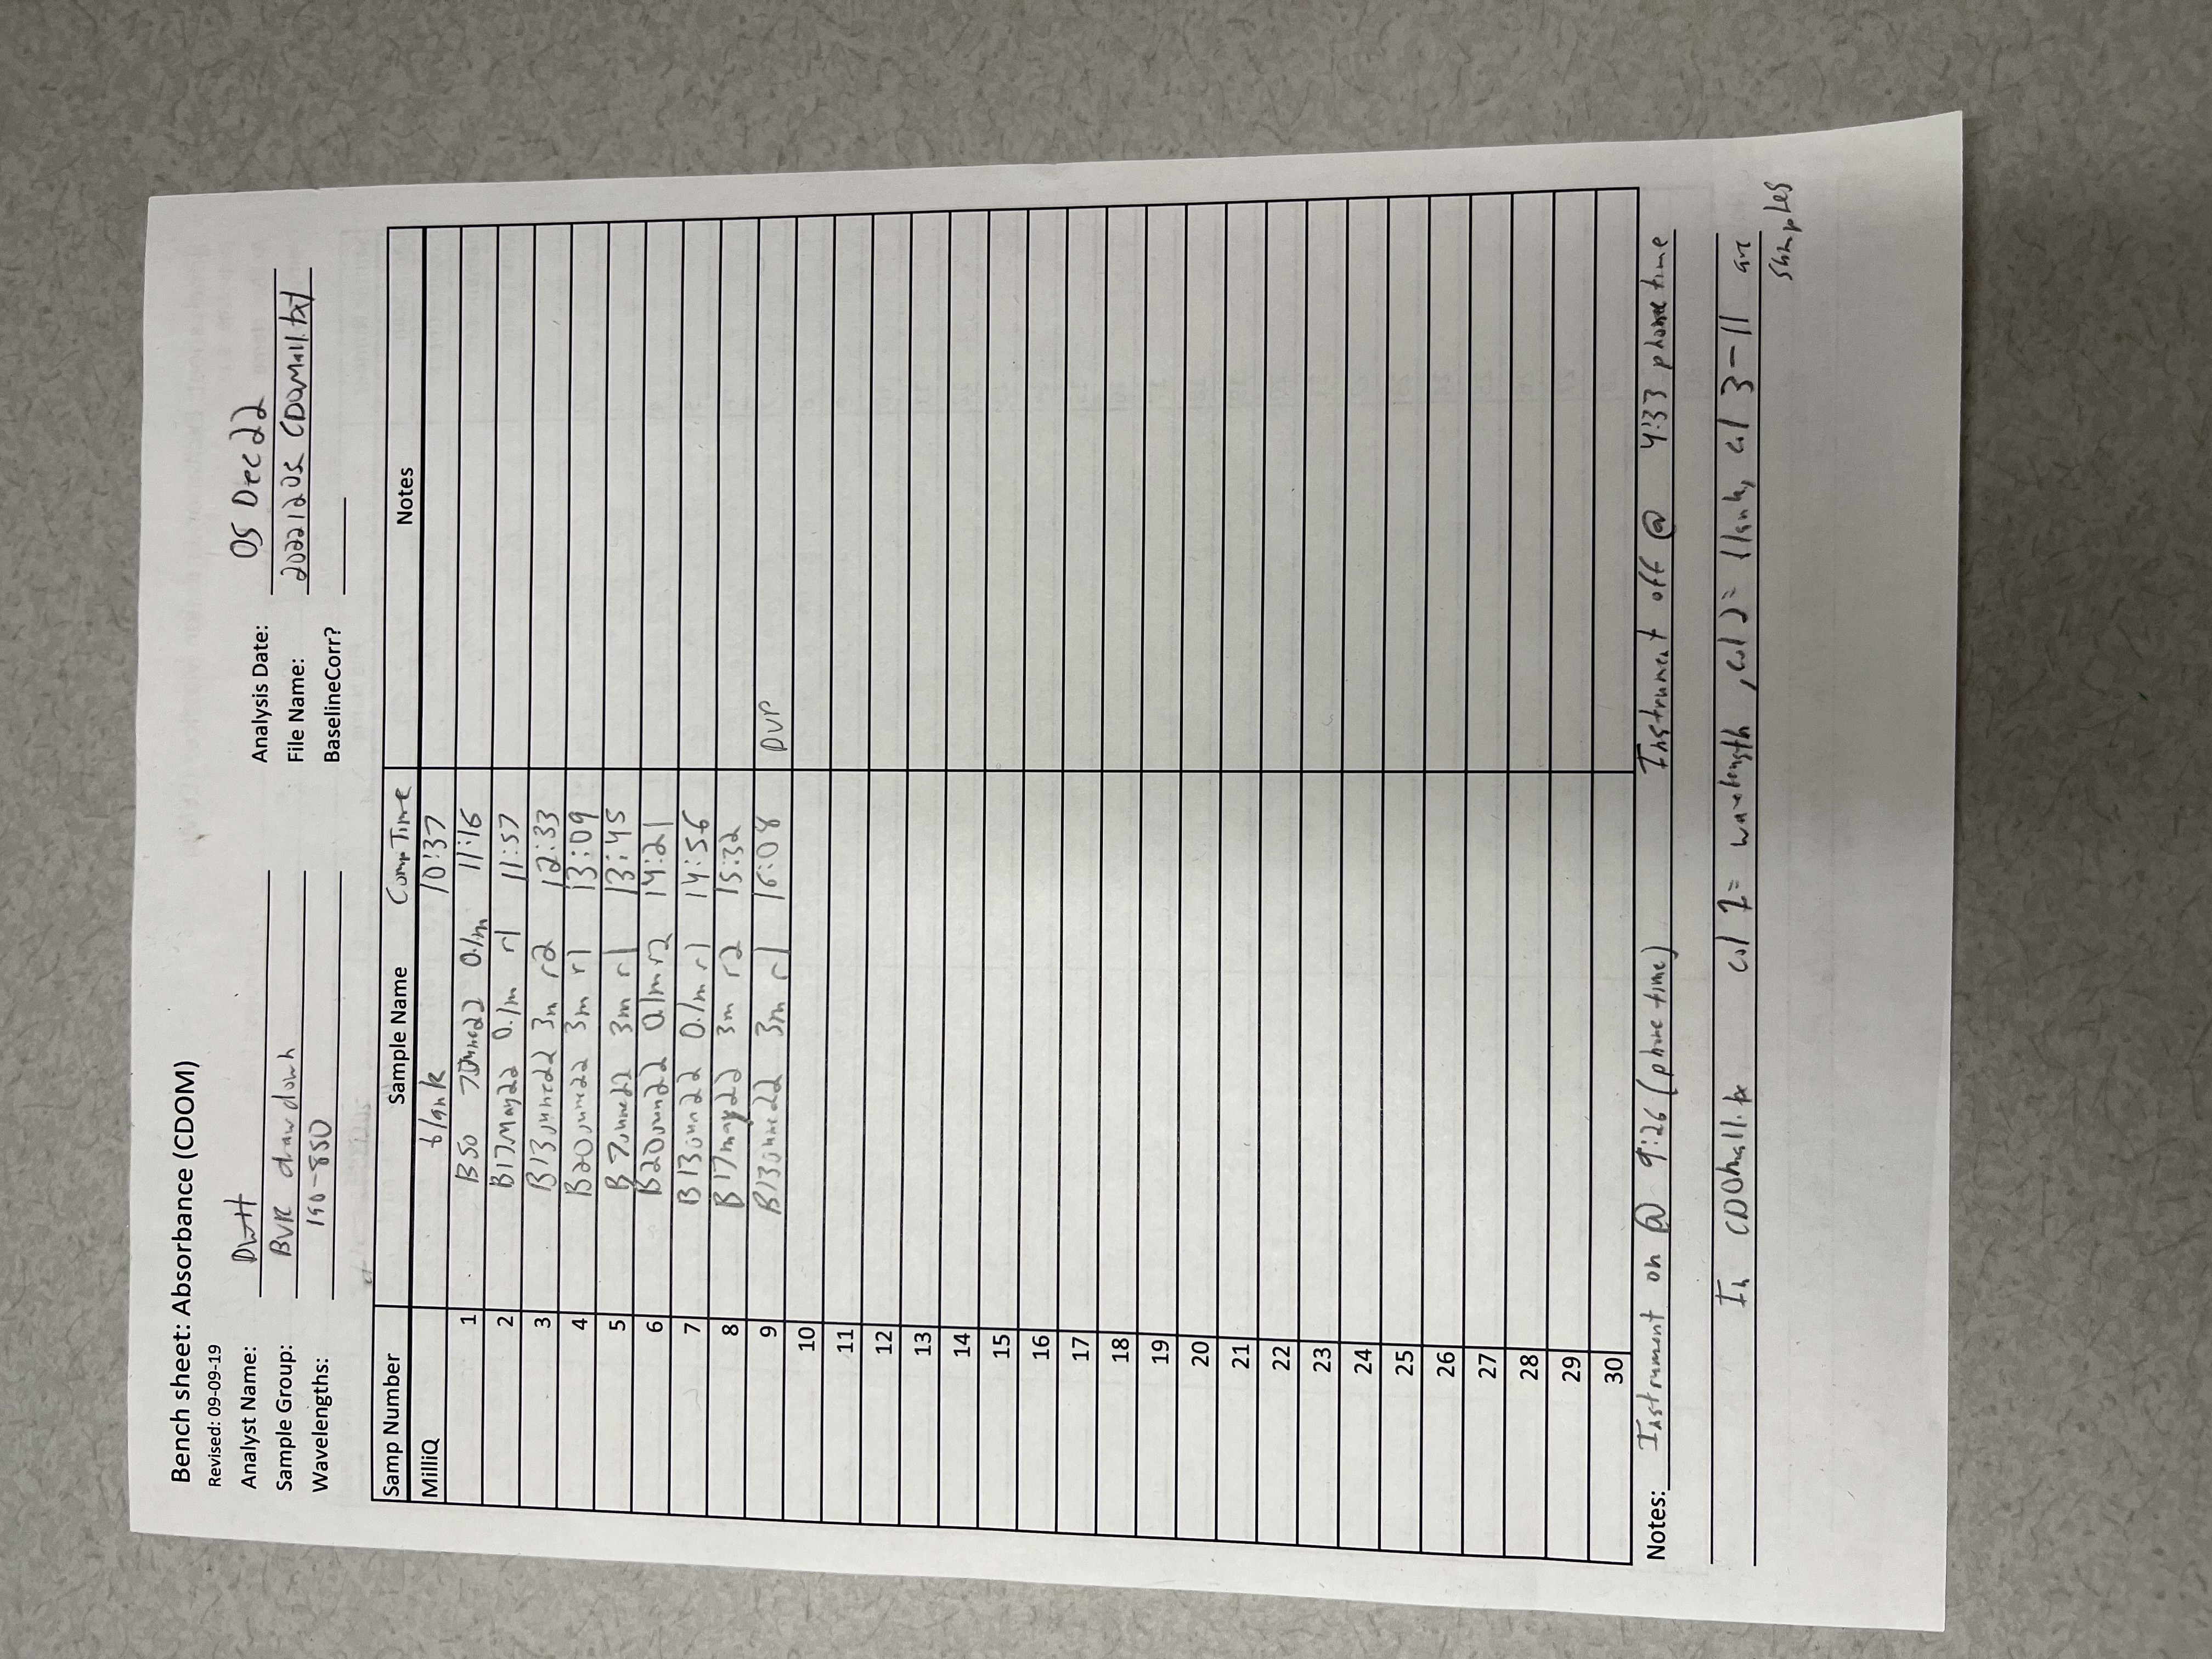 Bench sheet: Absorbance (CDOM)
Revised: 09-09-19
Analyst Name: DWH
Analysis Date: 05 Dec 22
Sample Group: BVR drawdown
File Name: 20221205 CDOMall.txt
Wavelengths: 190-850
BaselineCorr?
Samp Number Sample Name Comp Time Notes
MilliQ blank 10:37
1 B50 7June22 0.1m 11:16
2 B17May22 0.1m r1 11:57
3 B13june22 3m r2 12:33
4 B20june22 3m r1 13:09
5 B 7june22 3m r1 13:45
6 B20jun22 0.1m r2 14:21
7 B13jun22 0.1m r1 14:56
8 B17may22 3m r2 15:32
9 B13june22 3m r1 16:08 DUP
10
11
12
13
14
15
16
17
18
19
20
21
22
23
24
25
26
27
28
29
30
Notes: Instrument on @ 9:26 (phone time) Instrument off @ 4:33 phone time
In CDOMall.tx col 1= wavelength, col 2= blank, col 3-11 are
samples